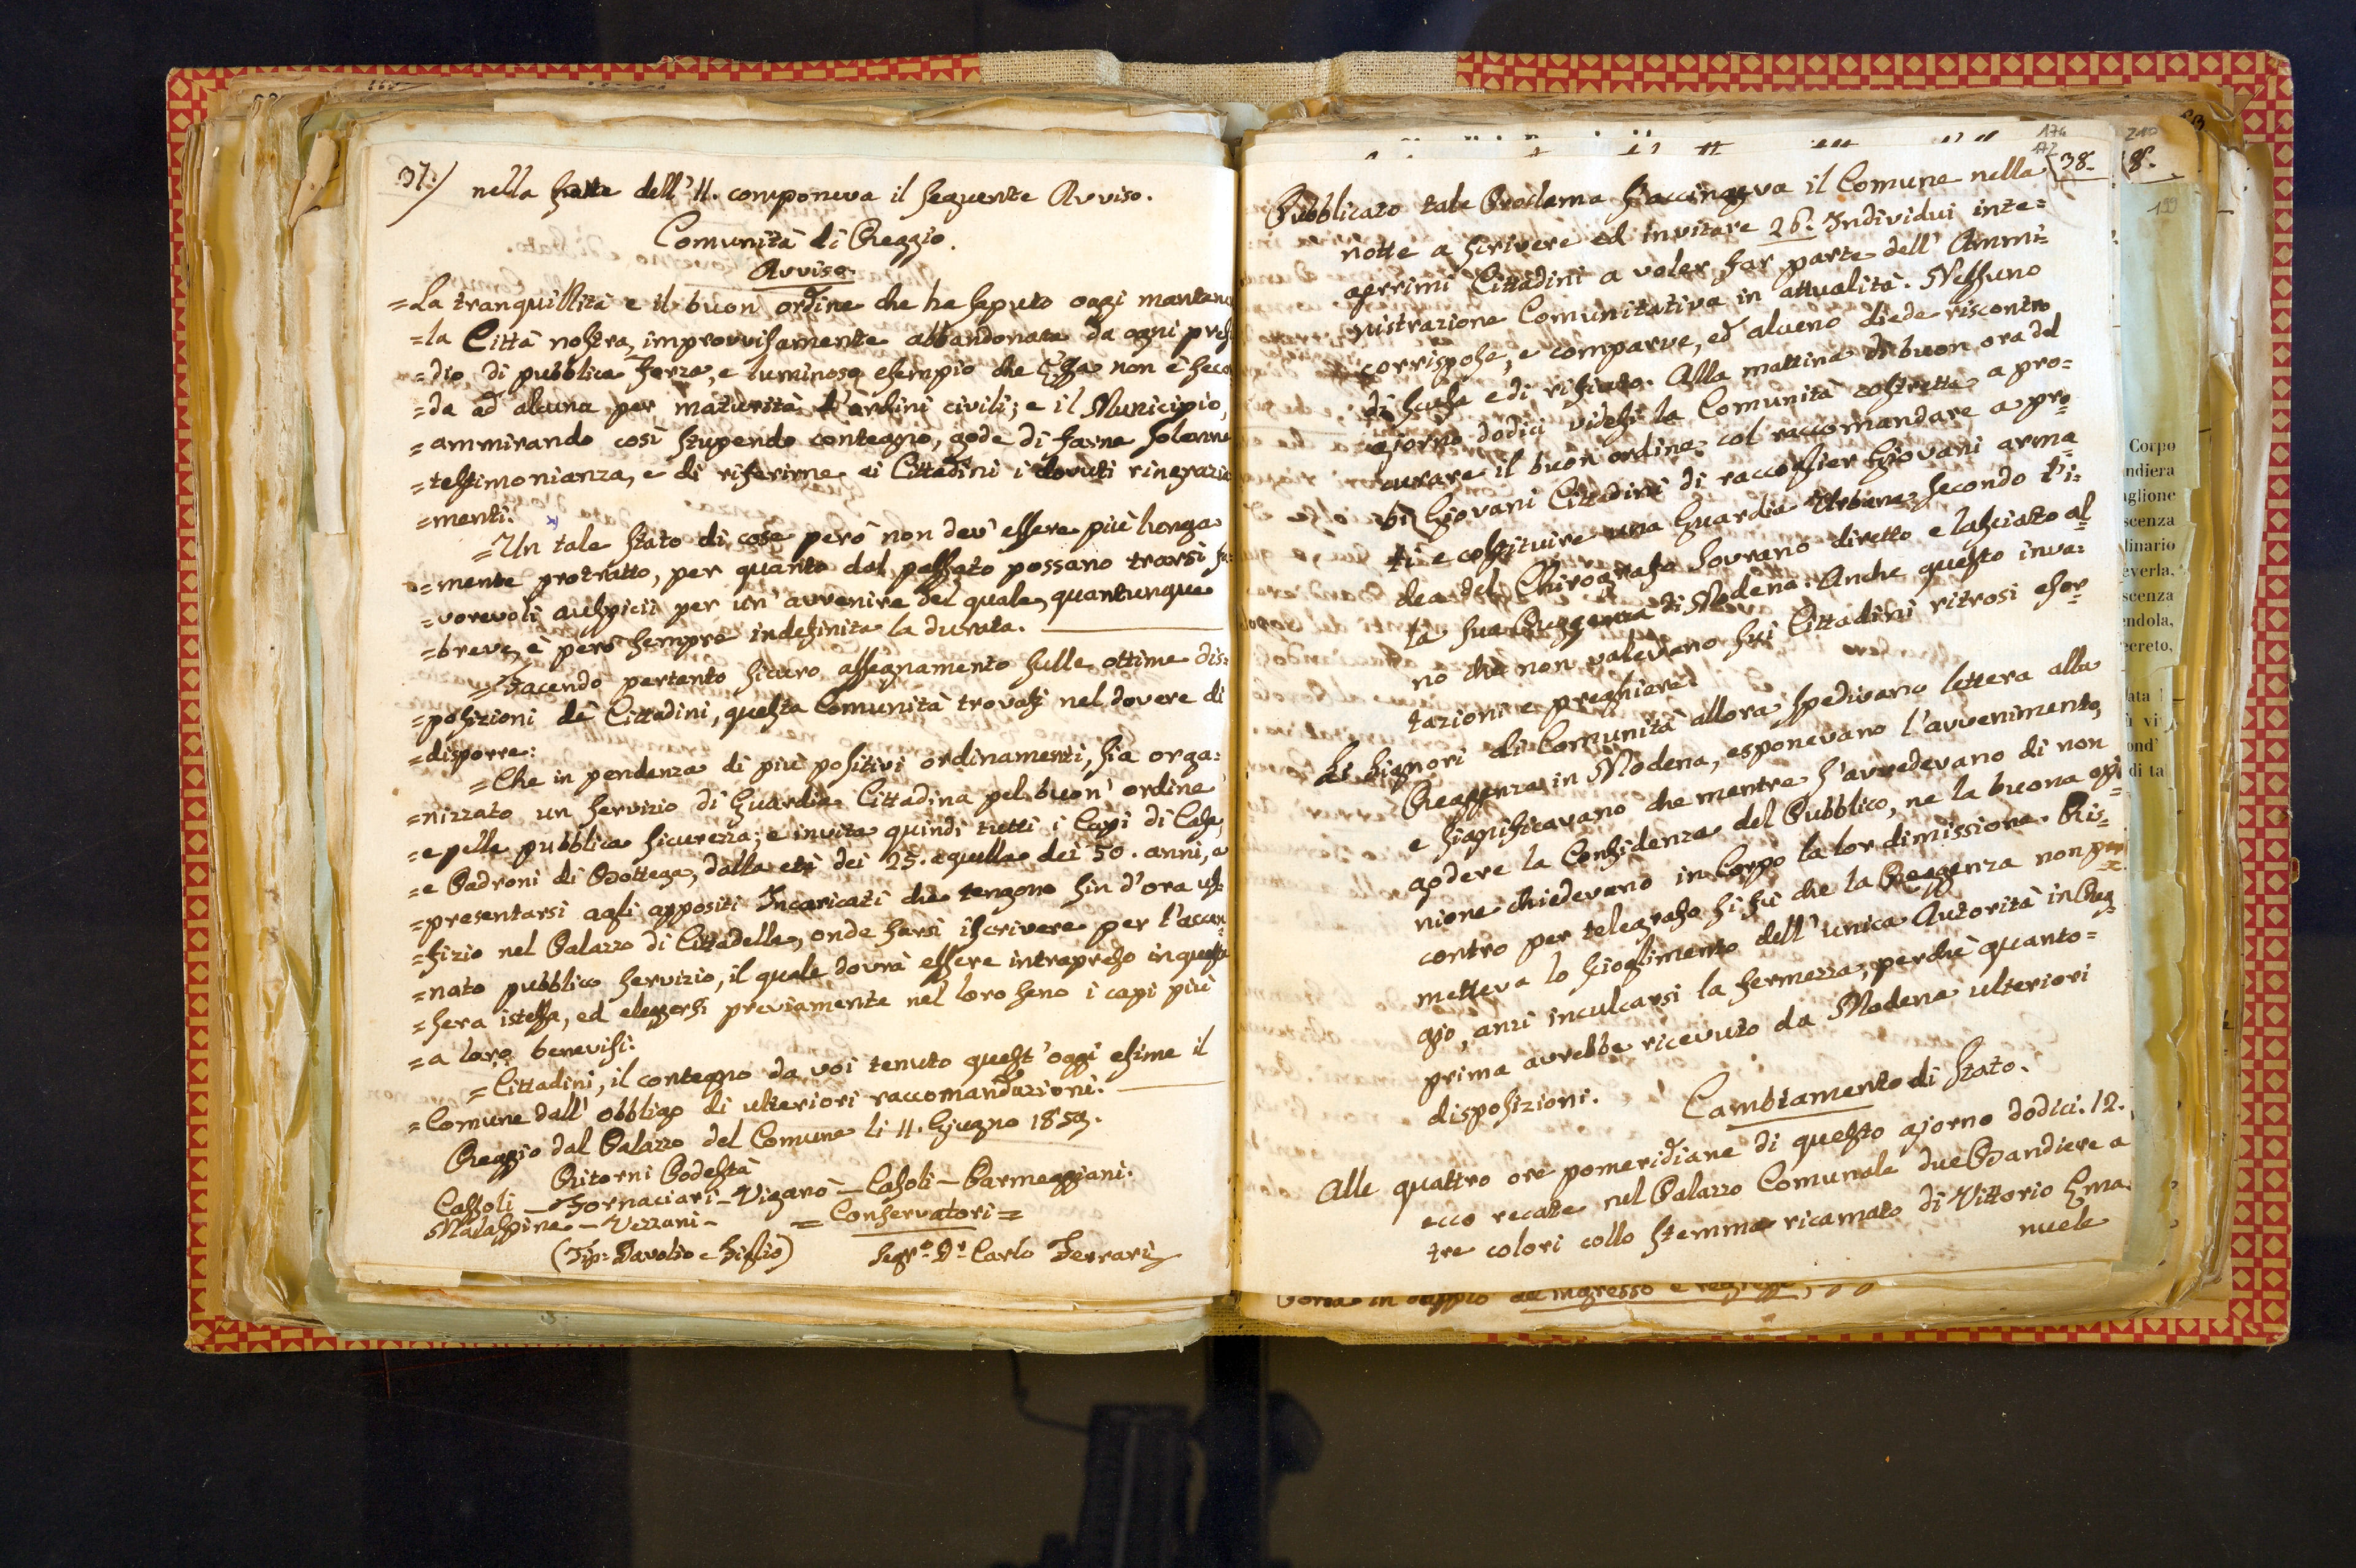 37.) nella sette dell' 11. componeva il seguente Avviso.
Comunità di Reggio.
Avviso.
=La tranquillità e il buon ordine che ha saputo oggi mantene
=la Città nostra, improvvisamente abbandonata da ogni presi
=dio di pubblica forza, e luminoso esempio che Essa non è seco
=da ad alcuna per maturità d'ordini civili; e il Municipio,
=ammirando così stupendo contegno, gode di farne solenne
=testimonianza, e di riferirne ai Cittadini i dovuti ringrazia
=menti.
=Un tale stato di cose però non dev' essere più lunga
=mente protratto, per quanto dal passato possano trarsi fa=
=vorevoli auspicii per un' avvenire del quale, quantunque
=breve, è però sempre indefinita la durata.
=Facendo pertanto sicuro assegnamento sulle ottime dis=
=posizioni de' Cittadini, questa Comunità trovasi nel dovere di
=disporre:
=Che in pendenza di più positivi ordinamenti, sia orga=
=nizzato un servizio di Guardia Cittadina pel buon' ordine
=e pella pubblica sicurezza; e invita quindi tutti i Capi di Casa,
=e Padroni di Bottega, dalla età dei 25. a quella dei 50. anni, a
=presentarsi agli appositi Incaricati che tengono sin d'ora uf=
=fizio nel Palazzo di Cittadella, onde farsi iscrivere per l'accen=
=nato pubblico servizio, il quale dovrà essere intrapreso in questa
=sera istessa, ed eleggersi previamente nel loro seno i capi più
=a loro benevisi.
=Cittadini, il contegno da voi tenuto quest' oggi esime il
=Comune dall' obbligo di ulteriori raccomandazioni.
Reggio dal Palazzo del Comune li 11. Giugno 1859.
Ritorni Podestà
Cassoli – Fornaciari – Viganò – Casoli – Parmeggiani.
Malaspina – Vezzani – = Conservatori =
(Tip: Davolio e Figlio) Segr.o D.r Carlo Ferrari
174
172
38.
Pubblicato tale Proclama s'accingeva il Comune nella
notte a scrivere ed invitare 26. Individui inte=
gerrimi Cittadini a voler far parte dell' Ammi=
nistrazione Comunitativa in attualità. Nessuno
corrispose, e comparve, ed alcuno diede riscontro
di scusa e di rifiuto. Alla mattina di buon ora del
giorno dodici videsi la Comunità costretta a pro=
curare il buon ordine col raccomandare a pro=
bi Giovani Cittadini di raccoglier Giovani arma=
ti e costituire una Guardia Urbana secondo l'i=
dea del Chirografo Sovrano diretto e lasciato al=
la sua Reggenza di Modena. Anche questo inva=
no che non valevano sui Cittadini ritrosi esor=
tazioni e preghiere.
Li Signori di Comunità allora spedivano lettera alla
Reggenza in Modena, esponevano l'avvenimento,
e significavano che mentre s'avvedevano di non
godere la Confidenza del Pubblico, ne la buona opi=
nione chiedevano in Corpo la lor dimissione. Ris=
contro per telegrafo si fù che la Reggenza non per=
metteva lo scioglimento dell' unica Autorità in Reg=
gio, anzi inculcarsi la fermezza, perchè quanto=
prima avrebbe ricevuto da Modena ulteriori
disposizioni.
Cambiamento di Stato.
Alle quattro ore pomeridiane di questo giorno dodici. 12.
ecco recate nel Palazzo Comunale due Bandiere a
tre colori collo stemma ricamato di Vittorio Ema=
nuele
210
8.
199
Corpo
ndiera
aglione
scenza
linario
everla,
scenza
endola,
ecreto,
di ta
in doppio ad ingresso e regresso